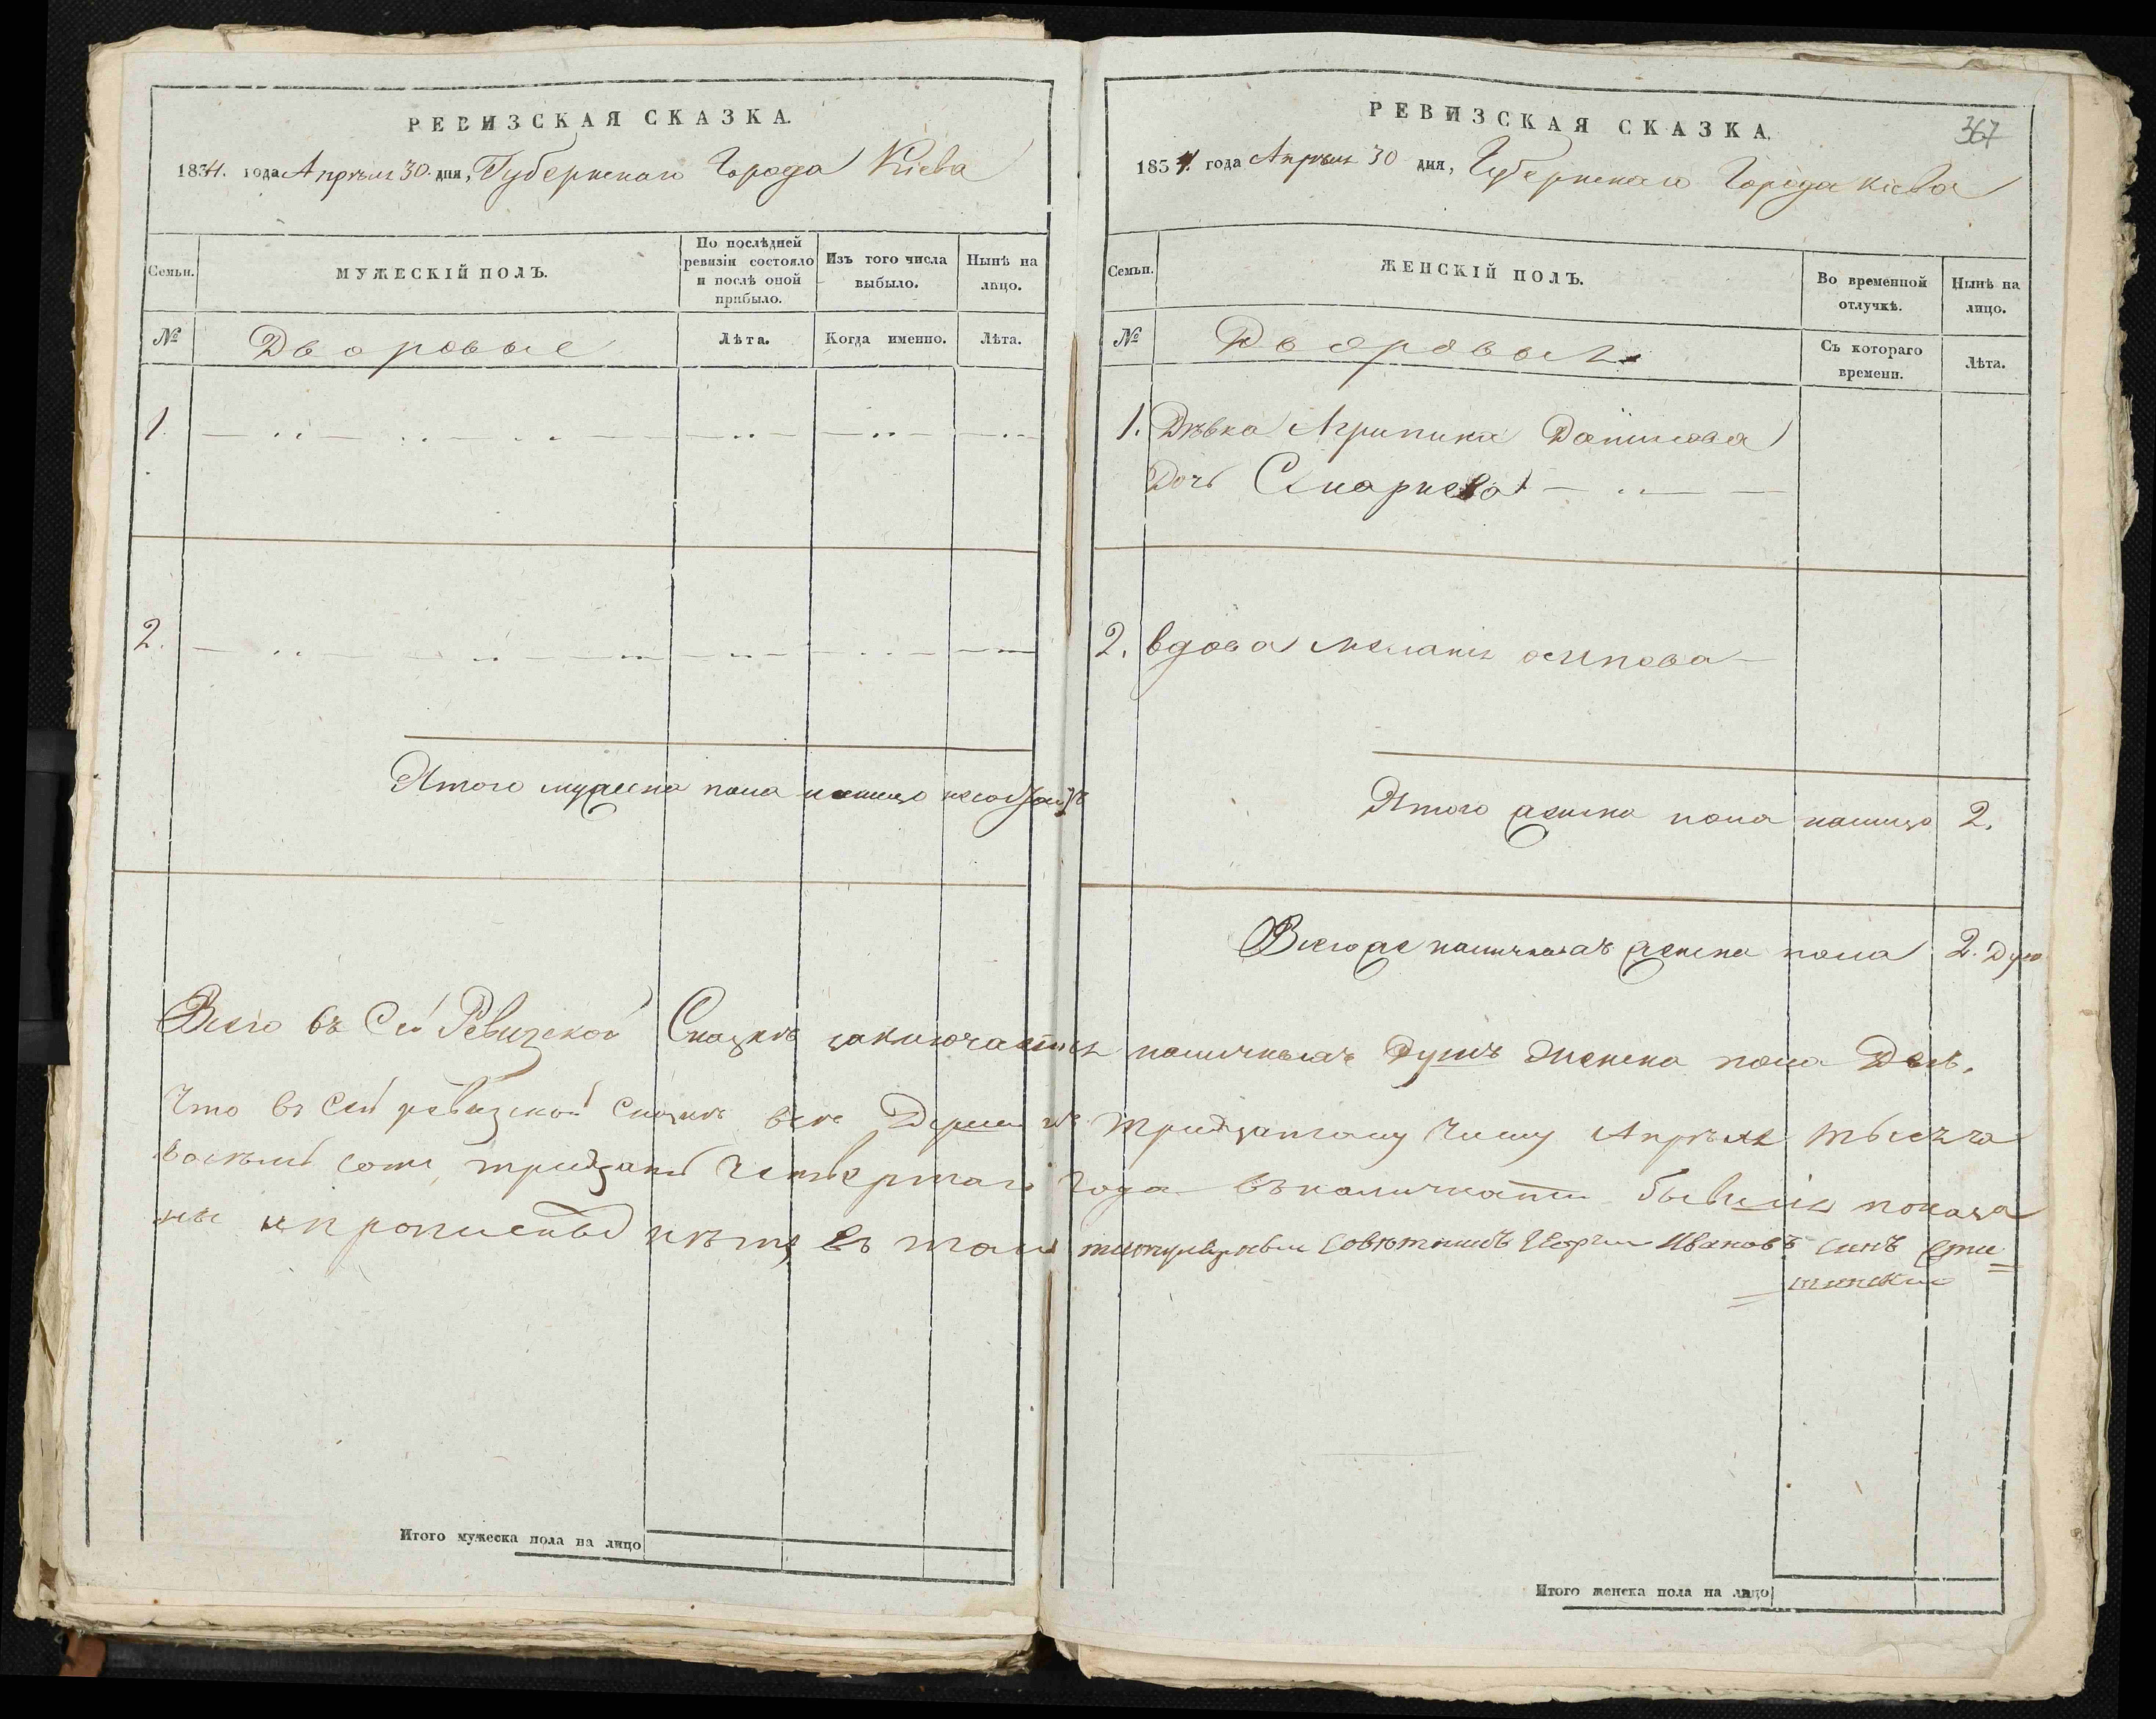 РЕВИЗСКАЯ СКАЗКА.
1834. года Апрѣля 30. дня, Губернскаго Города Кіева
Семьи.
МУЖЕСКІЙ ПОЛЪ.
По послѣдней ревизіи состояло и послѣ оной прибыло.
Изъ того числа выбыло.
Нынѣ на лицо.
№
Дворовые
Лѣта.
Когда именно.
Лѣта.
1.
2.
Итого мужеска пола налицо
Всего въ Сей Ревизской Сказкѣ заключается наличныхъ душъ женска пола Двѣ.
Что въ Сей ревизской Сказкѣ всѣ Души къ тридцатому числу Апрѣля тысяча
восемь сотъ тридцать четвертаго года въ наличности бывшія показа
ны и прописныхъ нѣтъ, въ томъ титулярный совѣтникъ Георгий Ивановъ синъ
Итого мужеска пола на лицо
РЕВИЗСКАЯ СКАЗКА.
367
1834. года Апрѣля 30 дня, Губернскаго Города Кіева
Семьи.
ЖЕНСКІЙ ПОЛЪ.
Во временной отлучкѣ.
Нынѣ на лицо.
№
Дворовыя
Съ котораго времени.
Лѣта.
1. Дѣвка Агрипина Данилова
Дочь
2. вдова Меланія осипова
Итого женска пола налицо 2.
Всего же наличныхъ женска пола 2. Душ
Итого женска пола на лицо